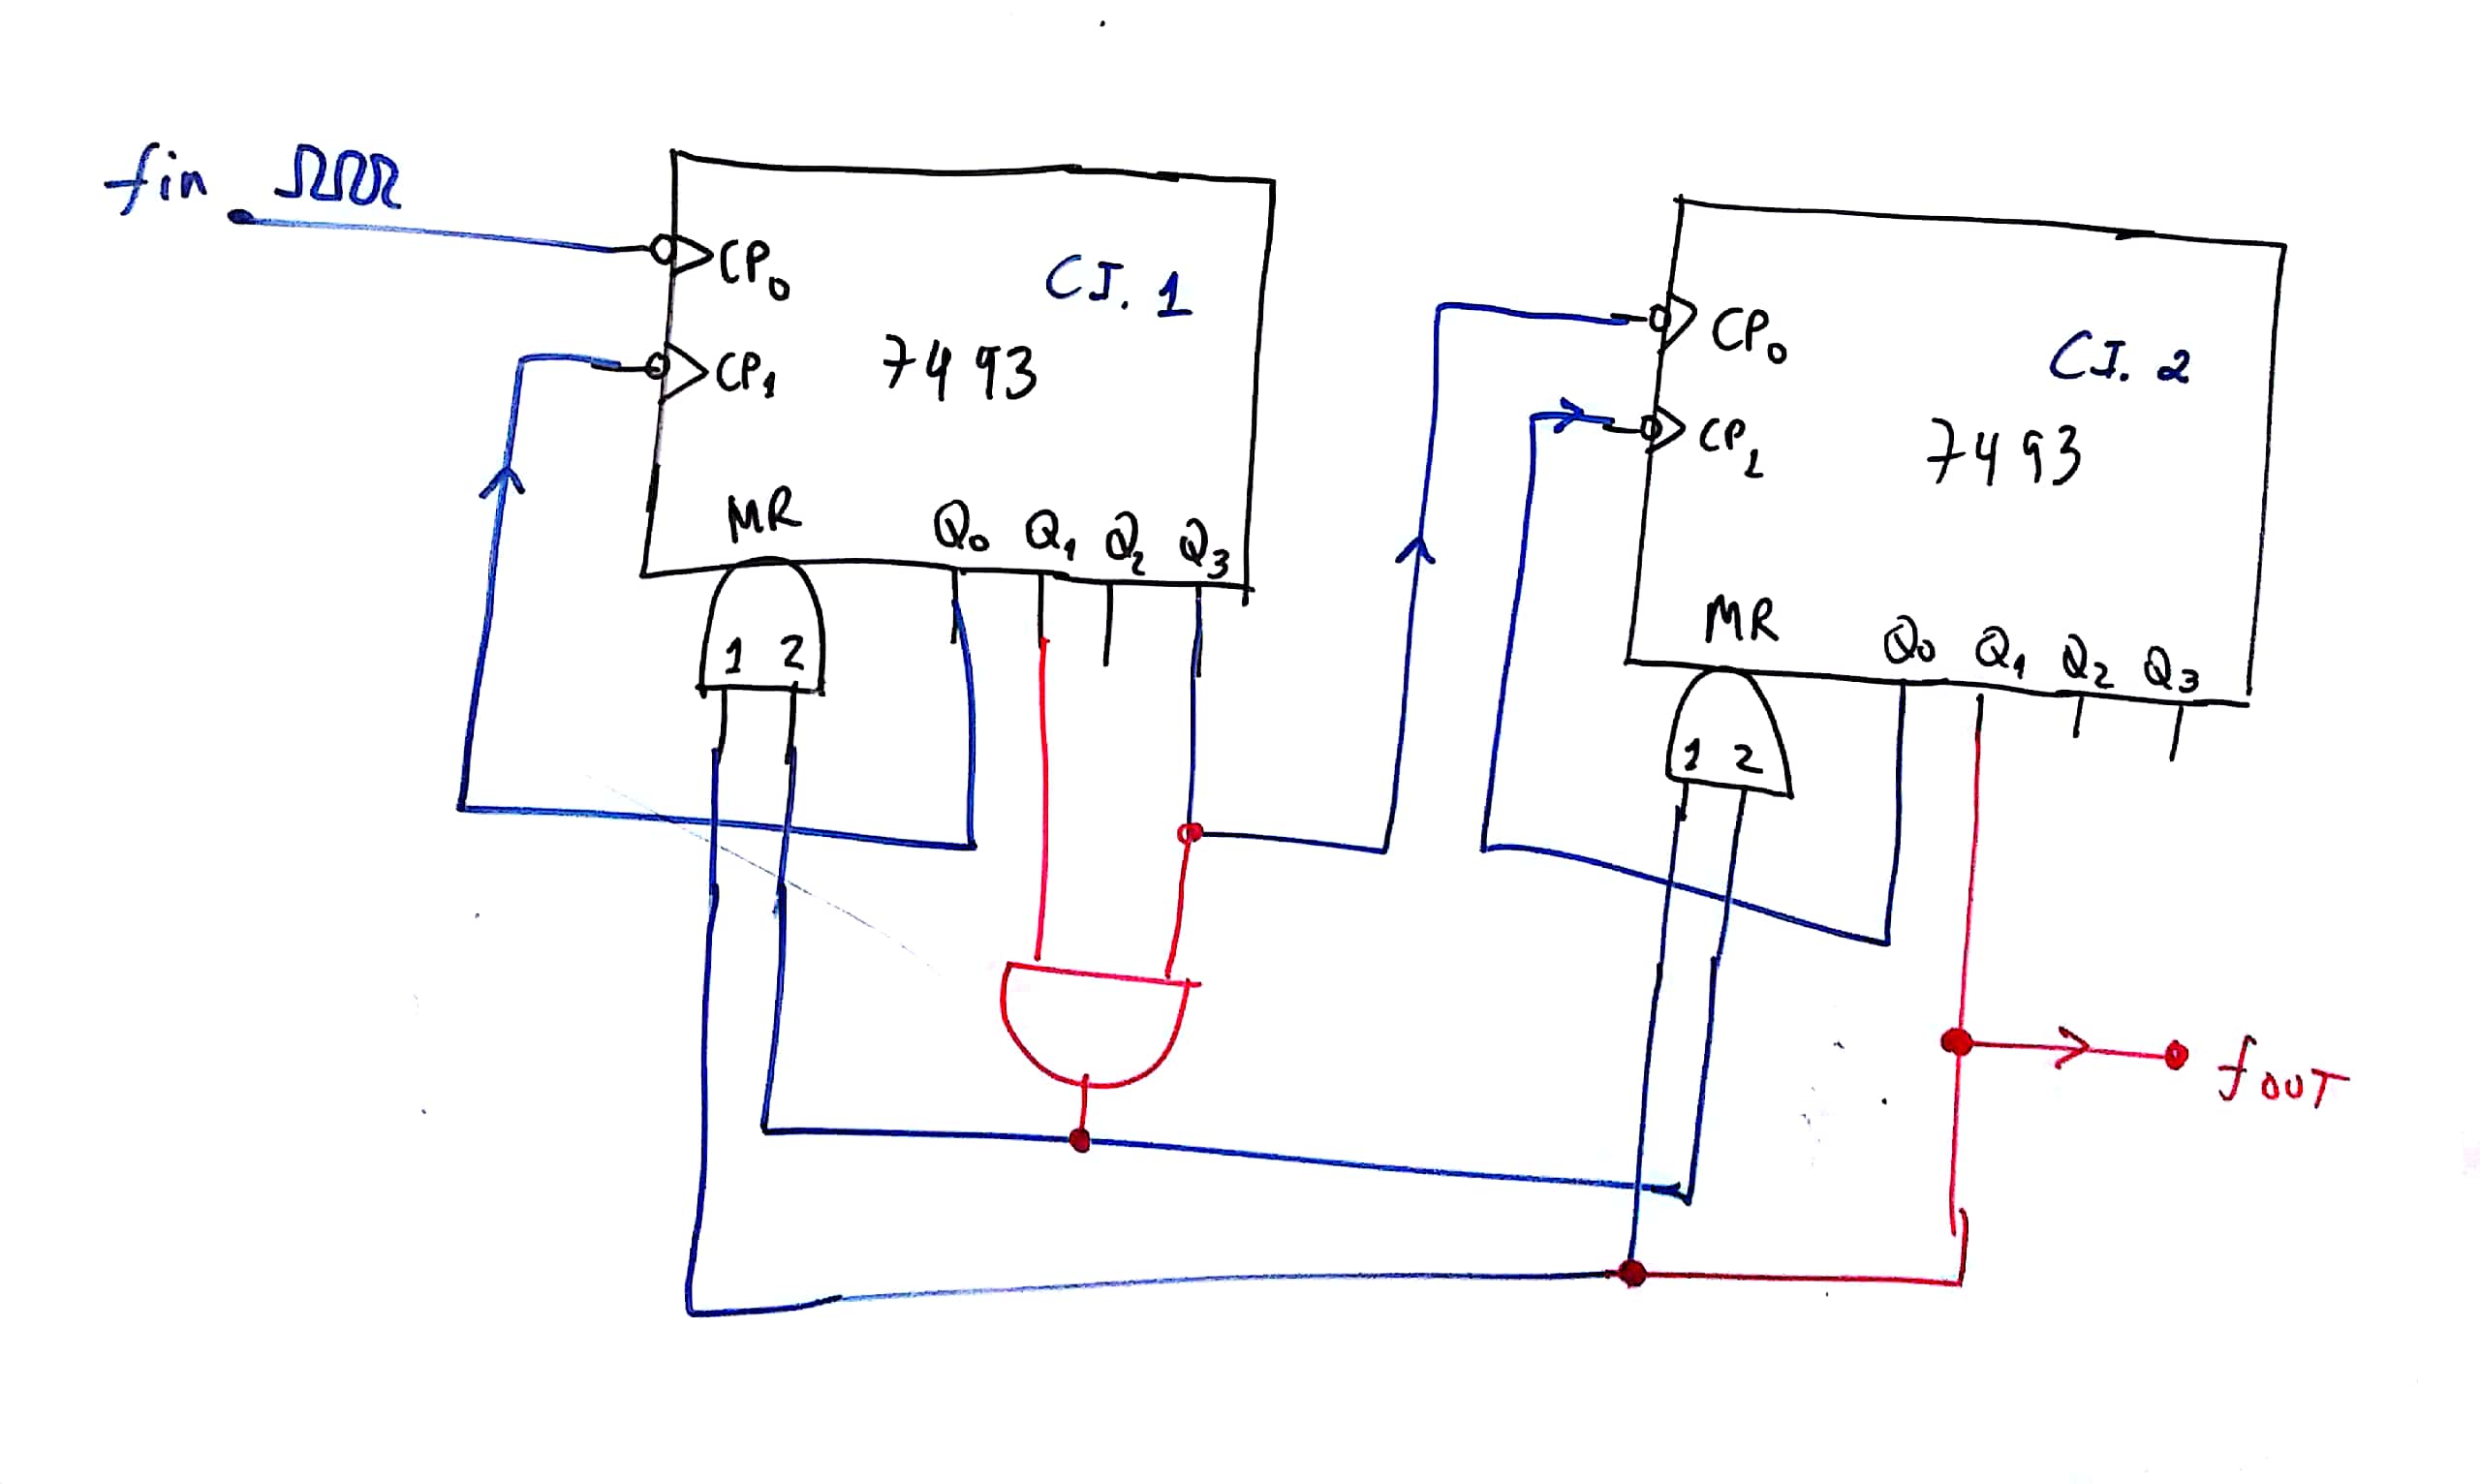 fin
CP0
CI. 1
CP1
7493
MR
Q0 Q1 Q2 Q3
1 2
CP0
CI. 2
CP1
7493
MR
Q0 Q1 Q2 Q3
1 2
fOUT